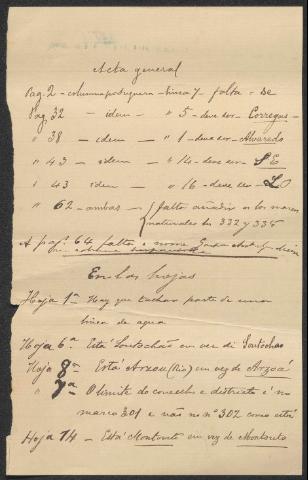 Acta general
Pag. 2 - columna portuguesa - linea 7 - falta - De
Pag. 32 - idem - " 5 - deve ser - Corregas -
" 38 - idem - " 1 - deve ser - Alvaredo
" 43 - idem - " 14 - dese ser - SE
" 43 idem - " 16 - dese ser - SO
" 62 - ambas - falta añadir os marcos
naturales los 332 y 335
A pag. 64 falta o nome
En las hojas
Hoja 1ª Hay que tachar parte de una
linea de agua
Hoja 6ª Está Loutschão em vez di Soutschao
Hoja 8ª Está Arzou (Rio) em vez de Arzoá
" 7ª O limite do concelho e districto é no
marco 301 e não no nº 302 como está
Hoja 14 - Está Montouto em vez de Montouto